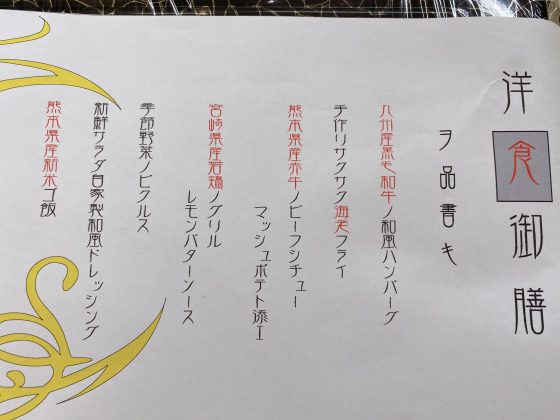 洋食御膳
ヲ品書キ
九州産黒毛和牛ノ和風ハンバーグ
手作リサクサク海老フライ
熊本県産赤牛ノビーフシチュー
マッシュポテト添エ
宮崎県産若鶏ノグリル
レモンバターソース
季節野菜ノピクルス
新鮮サラダ自家製和風ドレッシング
熊本県産新米ゴ飯